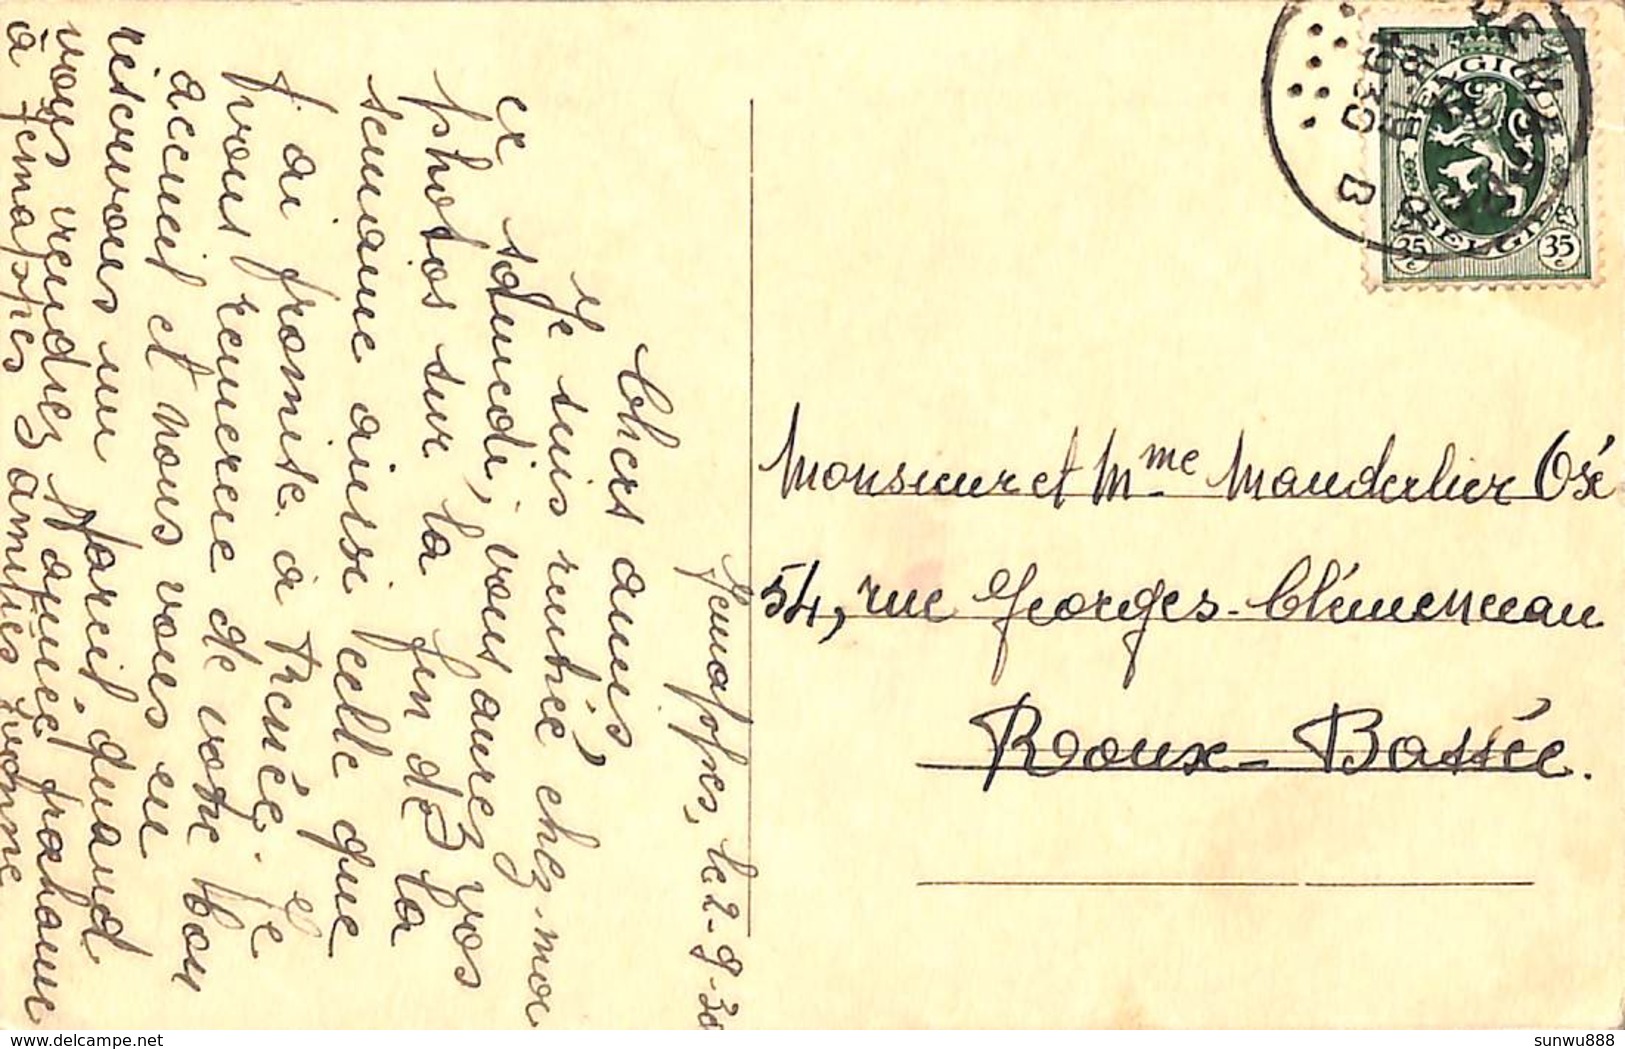 Jemappes, le 2-9-30
Chers amis,
Je suis rentrée chez-moi
ce samedi, vous aurez vos
photos sur la fin de la
semaine ainsi celle que
j'ai promise à Renée. Je
vous remercie de votre bon
accueil et nous vous en
réservons un pareil quand
vous viendrez
à Jemappes amitiés Yvonne
Monsieur et Mme Mauderlier Osé
54, rue Georges-Clémenceau
Roux-Bassée.
BELGIQUE
BELGIË
35 c
35 c
1930
B
sunwu888